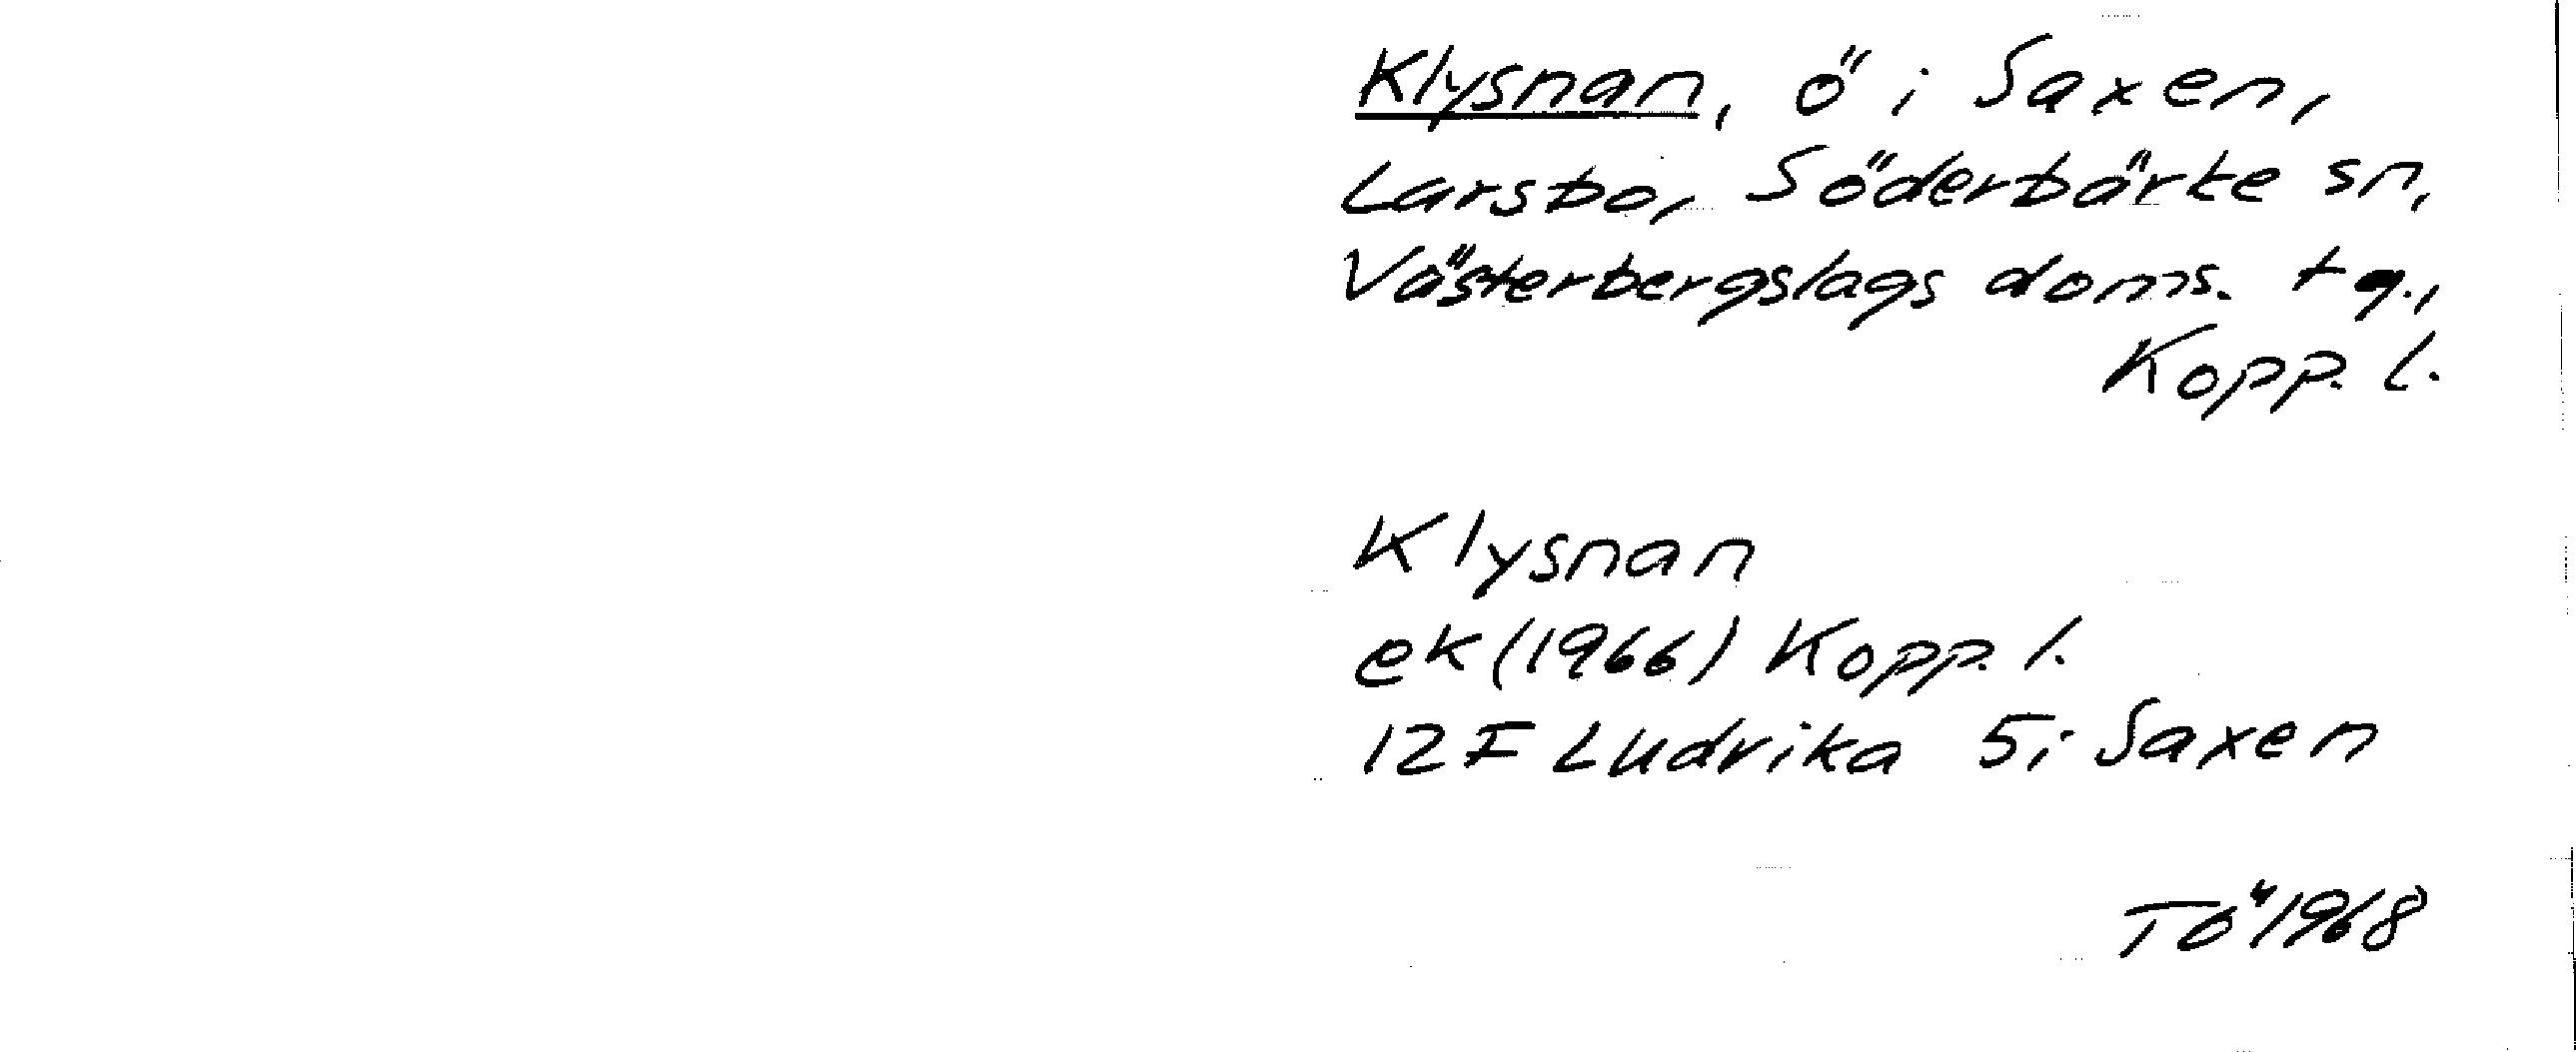 Klysnan, ö i Saxen,
Larsbo, Söderbärke sn,
Västerbergslags doms. tg.,
Kopp. l.
Klysnan
ek (1966) Kopp. l.
12F Ludvika 5i Saxen
TÖ 1968